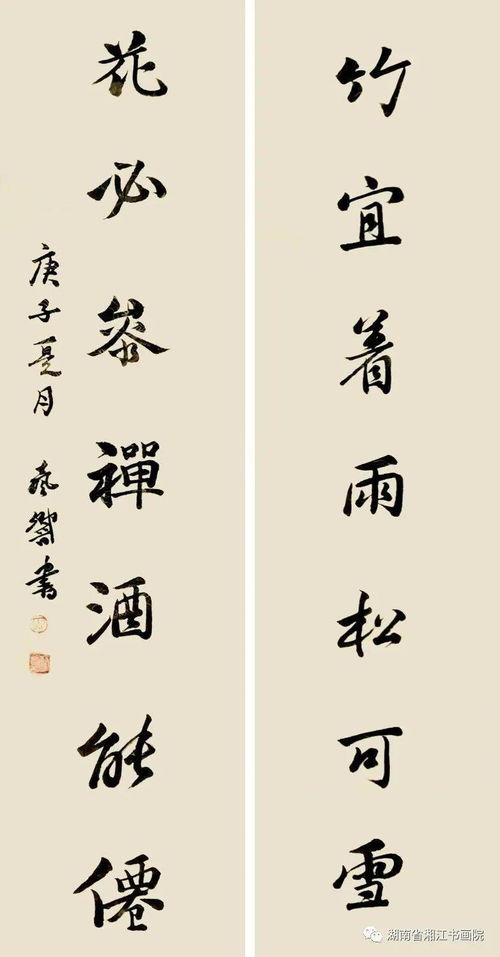 竹宜着雨松可雪
花必叅禪酒能僊
庚子夏月 書
湖南省湘江书画院